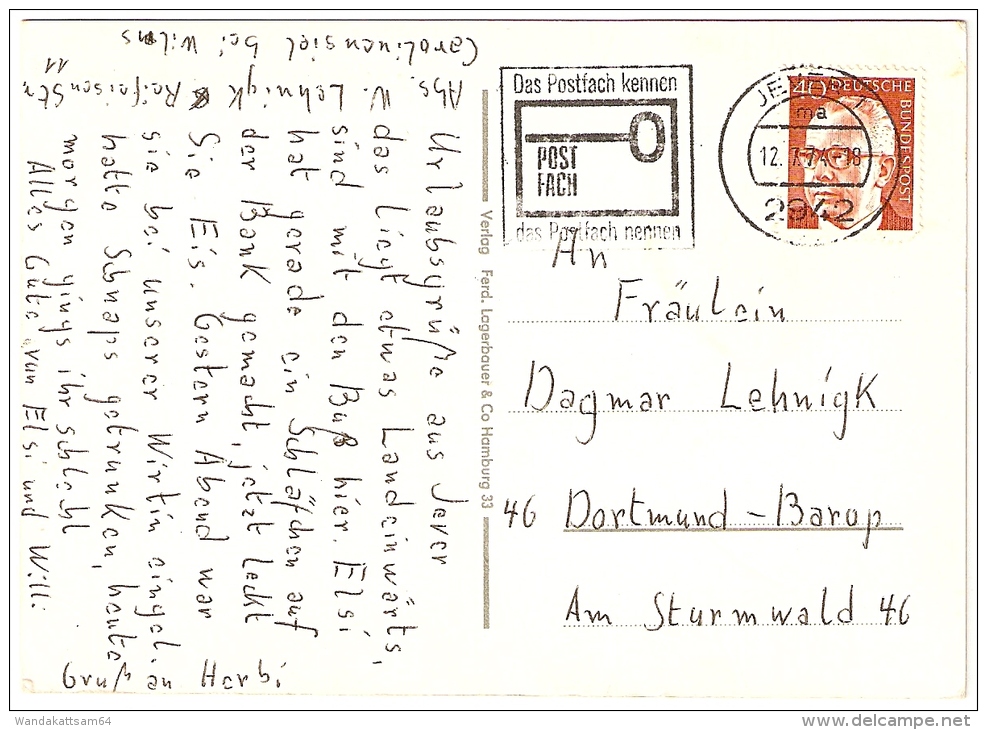 Abs. W. Lehnigk Reifeisenstr. 11
Carolinensiel bei Wilms
Urlaubsgrüße aus Jever
das liegt etwas Landeinwärts,
sind mit den Buß hier. Elsi
hat gerade ein Schläfchen auf
der Bank gemacht, jetzt leckt
Sie Eis. Gestern Abend war
sie bei unserer Wirtin eingel.
hatte Schnaps getrunken, heute
morgen gings ihr schlecht
Alles Gute von Elsi und Willi.
Gruß an
Das Postfach kennen
POST
FACH
das Postfach nennen
JEVER 1
ma
12.-7.74-18
2942
40 DEUTSCHE
BUNDESPOST
Verlag Ferd. Lagerbauer & Co Hamburg 33
An
Fräulein
Dagmar Lehnigk
46 Dortmund-Barop
Am Sturmwald 46
Wandakattsam64
delcampe.net